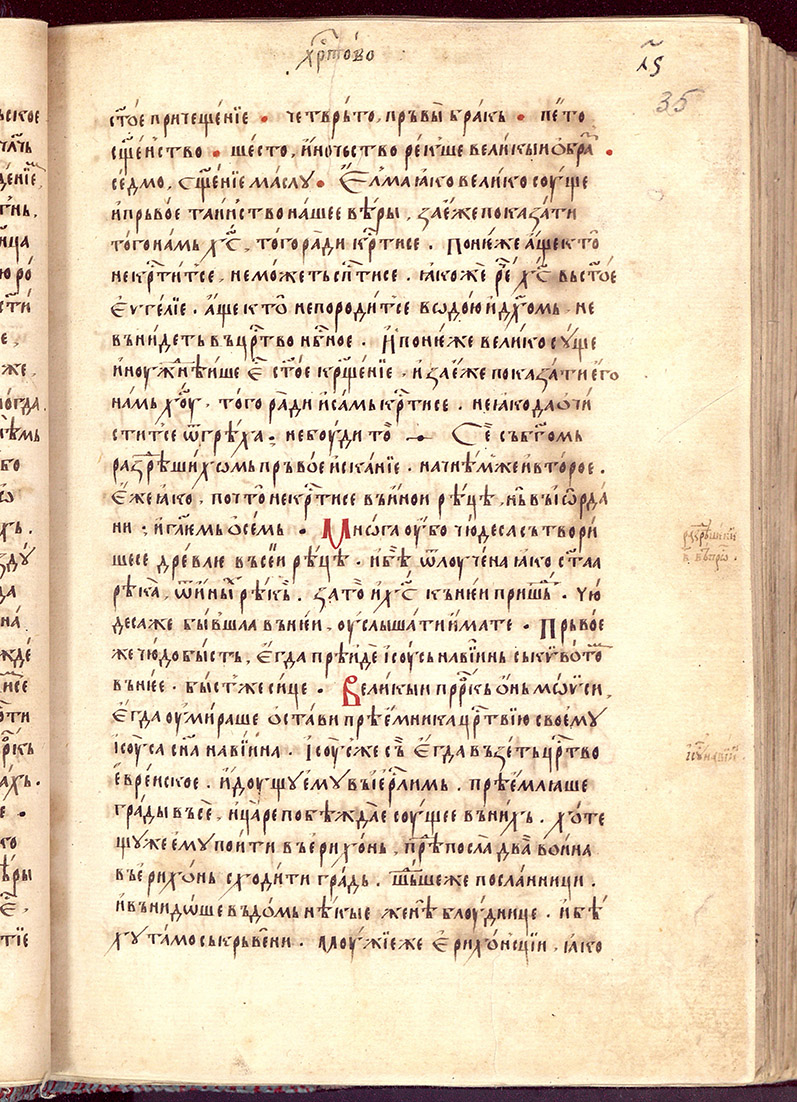 хрⷭ҇тово
л҃ѕ
35
ст҃ое причещенїе • четврьто, прьвы бракь • пето
сщ҃енство • шесто, иночьство рекше великыи ѻбра
седмо, сщ҃енїе маслу • Елма ꙗко велико соуще
и прьвое таинство нашее вѣры, за еже показати
того намь х҃с, того ради крⷭ҇тисе. Понⷤеже аще кто
не крⷭ҇титсе, не можеть сп҃тисе. ꙗкоже рече х҃с вь ст҃ое
еѵгелїе. аще кто не породитсе водою и дх҃омь, не
вънидеть въ црⷭ҇тво нбⷭ҇ное. И понеже велико суще
и ноужнѣише Е ст҃ое крщ҃енїе. и за еже показати его
намь х҃оу, того ради и самь крⷭ҇тисе. не ꙗко да ѻчи
ститсе ѿ грѣха, не боуди то — Се съ бг҃омь
разрѣшихомь прьвое исканїе. начнемже и второе.
Еже ꙗко, почто не крⷭ҇тисе въ инои рѣцѣ, нь въ їѻрда
ни; и гл҃емь ѻ семь • Многа оубо чюдеса сътвори
шесе древлю въ сеи рѣцѣ. и бѣ ѿлоучена ꙗко ст҃аа
рѣка, ѿ иныⷯ рѣкь. за то и х҃с къ нїеи пришⷣь. Чю
десаже бывшаа въ нїеи, оуслышати имате • Прьвое
же чюдо бысть, Егда прѣиде ісоусь навїинь сь кивотѡⷨ
въ нїее. бысть же сице • Великыи прⷪ҇ркь ѻнь мѡѵси,
Егда оумираше ѻстави прѣемника црⷭ҇твїю своему
ісоуса сн҃а навїина. Ісоусже съ Егда възеть црⷭ҇тво
еврейское. идоущу ему въ іерⷭ҇лимь. прѣемлꙗше
грады въсе, и царе побѣждае соущее въ нихь. хоте
щуже ему поити въ ерихѻнь, прѣпосла два воина
въ ерихѻнь сходити градь. шⷣьшеже посланници.
и вънидоше въ домь нѣкые жены блоуднице. и бѣ
ху тамо ськрьвени. моужїеже Ерихѻнсции, ꙗко
разрѣшенїе
в҃ въпрѡⷭ.
ісоу навїиⷩ